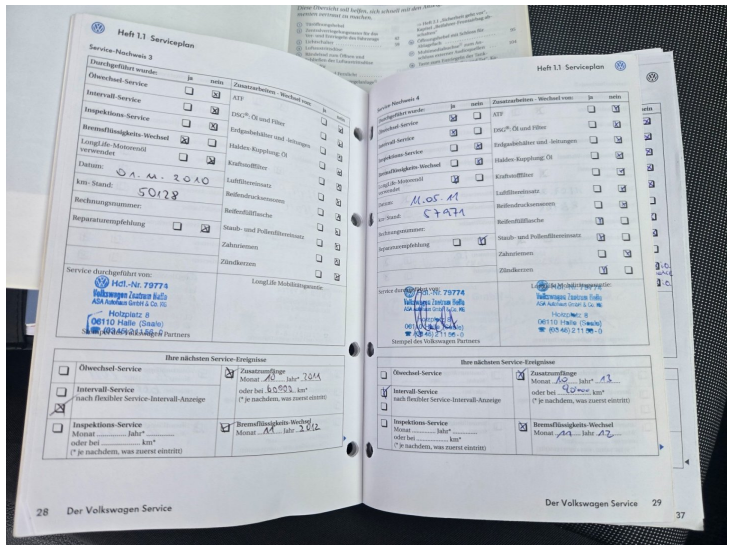 Diese Übersicht soll helfen, sich schnell mit den
mentien vertraut zu machen.
Heft 1.1 Serviceplan
Service-Nachweis 3
Durchgeführt wurde: ja nein
Ölwechsel-Service
Intervall-Service
Inspektions-Service
Bremsflüssigkeits-Wechsel
LongLife-Motorenöl
verwendet
Datum: 01.11.2010
km-Stand: 50128
Rechnungsnummer:
Reparaturempfehlung
Zusatzarbeiten - Wechsel von: ja nein
ATF
DSG®: Öl und Filter
Erdgasbehälter und -leitungen
Haldex-Kupplung: Öl
Kraftstofffilter
Luftfiltereinsatz
Reifendruckssensoren
Reifenfüllflasche
Staub- und Pollenfiltereinsatz
Zahnriemen
Zündkerzen
Service durchgeführt von:
LongLife Mobilitätsgarantie
Hdl.-Nr. 79774
Volkswagen Zentrum Halle
ASA Autohaus GmbH & Co. KG
Holzplatz 8
06110 Halle (Saale)
Stempel des Volkswagen Partners
Ihre nächsten Service-Ereignisse
Ölwechsel-Service
Intervall-Service
nach flexibler Service-Intervall-Anzeige
Inspektions-Service
Monat Jahr*
oder bei km*
(* je nachdem, was zuerst eintritt)
Zusatzumfänge
Monat 10 Jahr* 2011
oder bei 60000 km*
(* je nachdem, was zuerst eintritt)
Bremsflüssigkeits-Wechsel
Monat 11 Jahr 2012
28 Der Volkswagen Service
Heft 1.1 Serviceplan
Service-Nachweis 4
Durchgeführt wurde: ja nein
Ölwechsel-Service
Intervall-Service
Inspektions-Service
Bremsflüssigkeits-Wechsel
LongLife-Motorenöl
verwendet
Datum: 11.05.11
km-Stand: 67971
Rechnungsnummer:
Reparaturempfehlung
Zusatzarbeiten - Wechsel von: ja nein
ATF
DSG®: Öl und Filter
Erdgasbehälter und -leitungen
Haldex-Kupplung: Öl
Kraftstofffilter
Luftfiltereinsatz
Reifendruckssensoren
Reifenfüllflasche
Staub- und Pollenfiltereinsatz
Zahnriemen
Zündkerzen
Service durchgeführt von:
LongLife Mobilitätsgarantie:
Hdl.-Nr. 79774
Volkswagen Zentrum Halle
ASA Autohaus GmbH & Co. KG
Holzplatz 8
06110 Halle (Saale)
Stempel des Volkswagen Partners
Ihre nächsten Service-Ereignisse
Ölwechsel-Service
Intervall-Service
nach flexibler Service-Intervall-Anzeige
Inspektions-Service
Monat Jahr*
oder bei km*
(* je nachdem, was zuerst eintritt)
Zusatzumfänge
Monat 10 Jahr* 13
oder bei 90000 km*
(* je nachdem, was zuerst eintritt)
Bremsflüssigkeits-Wechsel
Monat 11 Jahr 12
Der Volkswagen Service 29
nein
37